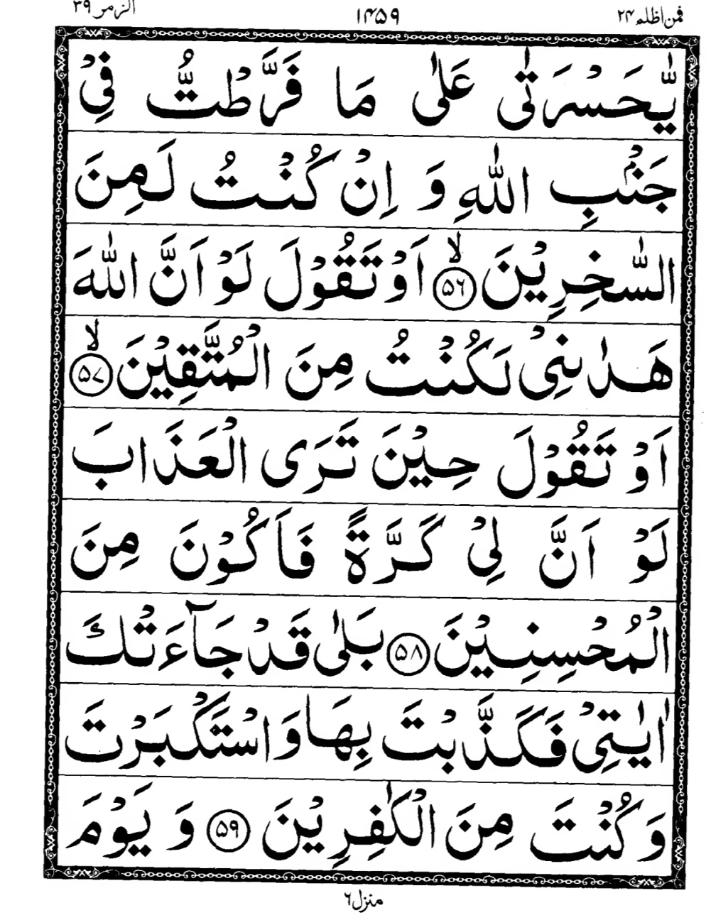 فمن اظلم ۲۴ ۱۴۵۹ الزمر ۳۹
یّٰحَسْرَتٰی عَلٰی مَا فَرَّطْتُّ فِیْ
جَنْۢبِ اللّٰهِ وَ اِنْ كُنْتُ لَمِنَ
السّٰخِرِیْنَ ﴿۵۶﴾ۙ اَوْ تَقُوْلَ لَوْ اَنَّ اللّٰهَ
هَدٰىنِیْ لَكُنْتُ مِنَ الْمُتَّقِیْنَ ﴿۵۷﴾ۙ
اَوْ تَقُوْلَ حِیْنَ تَرَی الْعَذَابَ
لَوْ اَنَّ لِیْ كَرَّةً فَاَكُوْنَ مِنَ
الْمُحْسِنِیْنَ ﴿۵۸﴾ بَلٰی قَدْ جَآءَتْكَ
اٰیٰتِیْ فَكَذَّبْتَ بِهَا وَ اسْتَكْبَرْتَ
وَ كُنْتَ مِنَ الْكٰفِرِیْنَ ﴿۵۹﴾ وَ یَوْمَ
منزل ۶